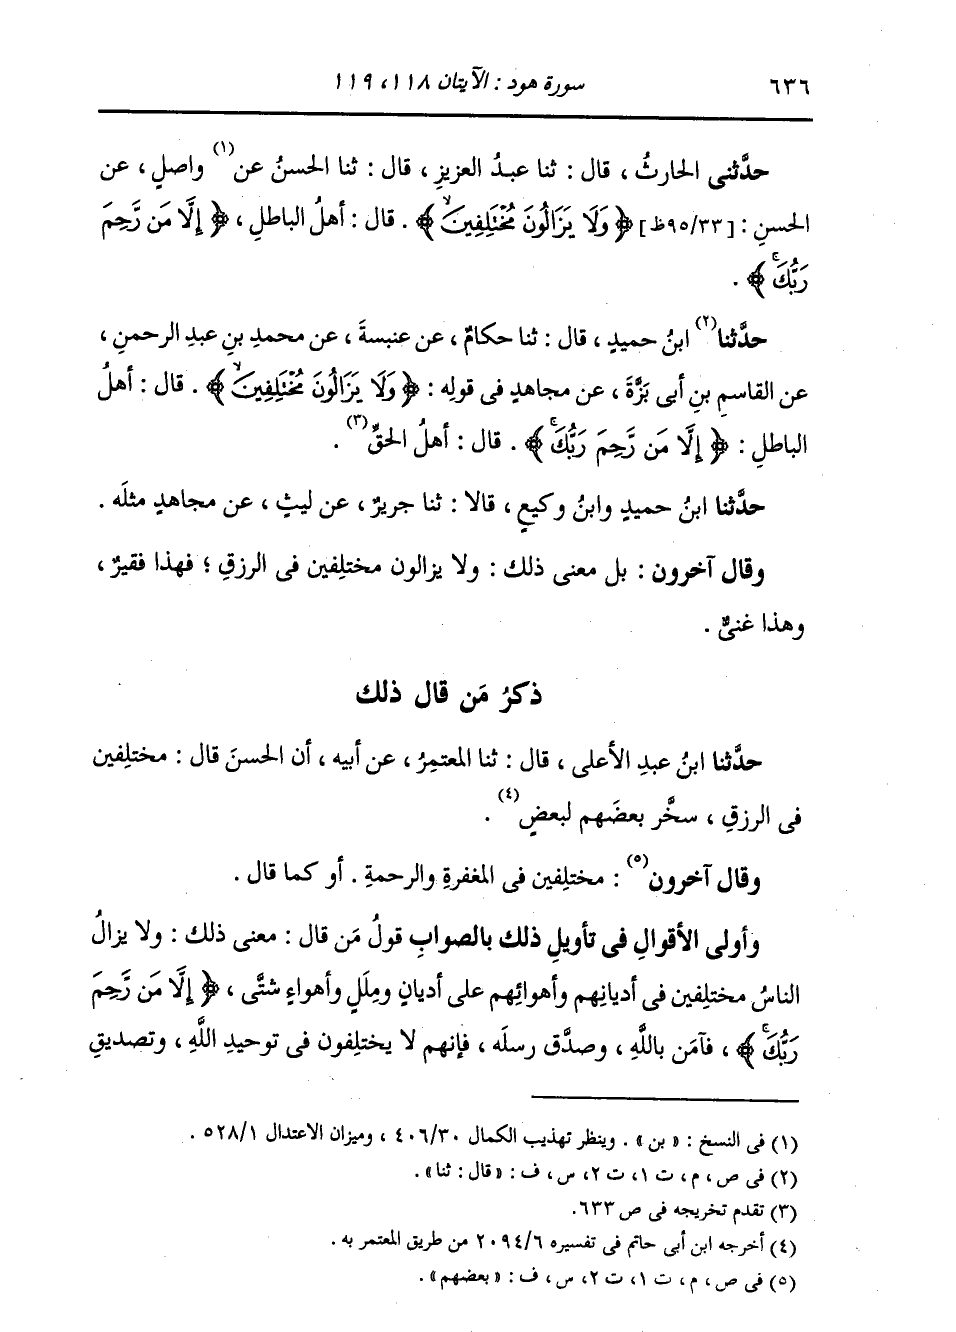 ٦٣٦ سورة هود : الآيتان ١١٨، ١١٩
حدَّثنى الحارثُ ، قال : ثنا عبدُ العزيزِ ، قال : ثنا الحسنُ عن(١) واصلٍ ، عن
الحسنِ : [٩٥/٣٣ظ] ﴿ وَلَا يَزَالُونَ مُخْتَلِفِينَۙ ﴾ . قال : أهلُ الباطلِ ، ﴿ إِلَّا مَن رَّحِمَ
رَبُّكَۚ ﴾ .
حدَّثنا(٢) ابنُ حميدٍ ، قال : ثنا حكامٌ ، عن عنبسةَ ، عن محمدِ بنِ عبدِ الرحمنِ ،
عن القاسمِ بنِ أبى بَزَّةَ ، عن مجاهدٍ فى قولِه : ﴿ وَلَا يَزَالُونَ مُخْتَلِفِينَۙ ﴾ . قال : أهلُ
الباطلِ : ﴿ إِلَّا مَن رَّحِمَ رَبُّكَۚ ﴾ . قال : أهلُ الحقِّ(٣) .
حدَّثنا ابنُ حميدٍ وابنُ وكيعٍ ، قالا : ثنا جريرٌ ، عن ليثٍ ، عن مجاهدٍ مثلَه .
وقال آخرون : بل معنى ذلك : ولا يزالون مختلِفين فى الرزقِ ؛ فهذا فقيرٌ ،
وهذا غنىٌّ .
ذكرُ مَن قال ذلك
حدَّثنا ابنُ عبدِ الأعلى ، قال : ثنا المعتمِرُ ، عن أبيه ، أن الحسنَ قال : مختلِفين
فى الرزقِ ، سخَّر بعضَهم لبعضٍ(٤) .
وقال آخرون(٥) : مختلِفين فى المغفرةِ والرحمةِ . أو كما قال .
وأولى الأقوالِ فى تأويلِ ذلك بالصوابِ قولُ مَن قال : معنى ذلك : ولا يزالُ
الناسُ مختلِفين فى أديانِهم وأهوائِهم على أديانٍ ومِلَلٍ وأهواءٍ شتَّى ، ﴿ إِلَّا مَن رَّحِمَ
رَبُّكَۚ ﴾ ، فآمَن باللَّهِ ، وصدَّق رسلَه ، فإنهم لا يختلِفون فى توحيدِ اللَّهِ ، وتصديقِ
(١) فى النسخ : « بن » . وينظر تهذيب الكمال ٤٠٦/٣٠ ، وميزان الاعتدال ٥٢٨/١ .
(٢) فى ص ، م ، ت ١، ت ٢، س ، ف : « قال : ثنا » .
(٣) تقدم تخريجه فى ص ٦٣٣.
(٤) أخرجه ابن أبى حاتم فى تفسيره ٢٠٩٤/٦ من طريق المعتمر به .
(٥) فى ص ، م ، ت ١، ت ٢، س ، ف : « بعضهم » .